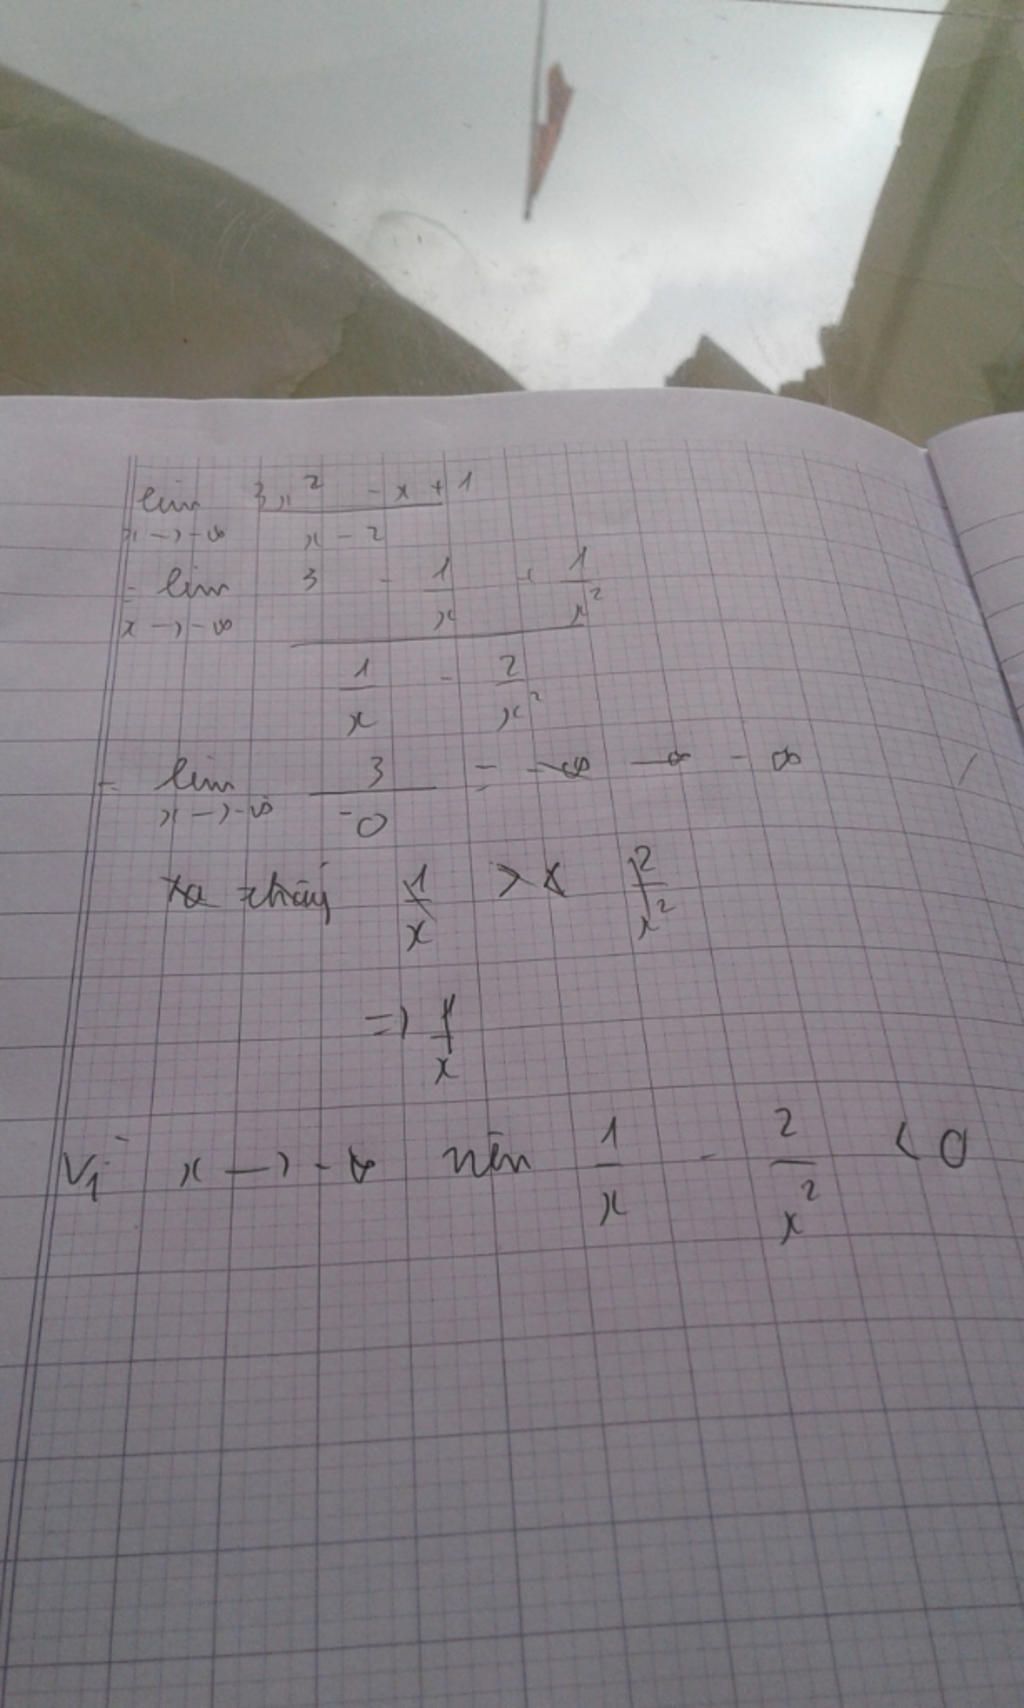 lim 3x² - x + 1
x → -∞ x - 2
= lim 3 - 1/x + 1/x²
x → -∞
1/x - 2/x²
= lim 3 = -∞ -∞ - ∞
x → -∞ -0
ta thấy 1/x > < 2/x²
=> 1/x
Vì x → -∞ nên 1/x - 2/x² < 0